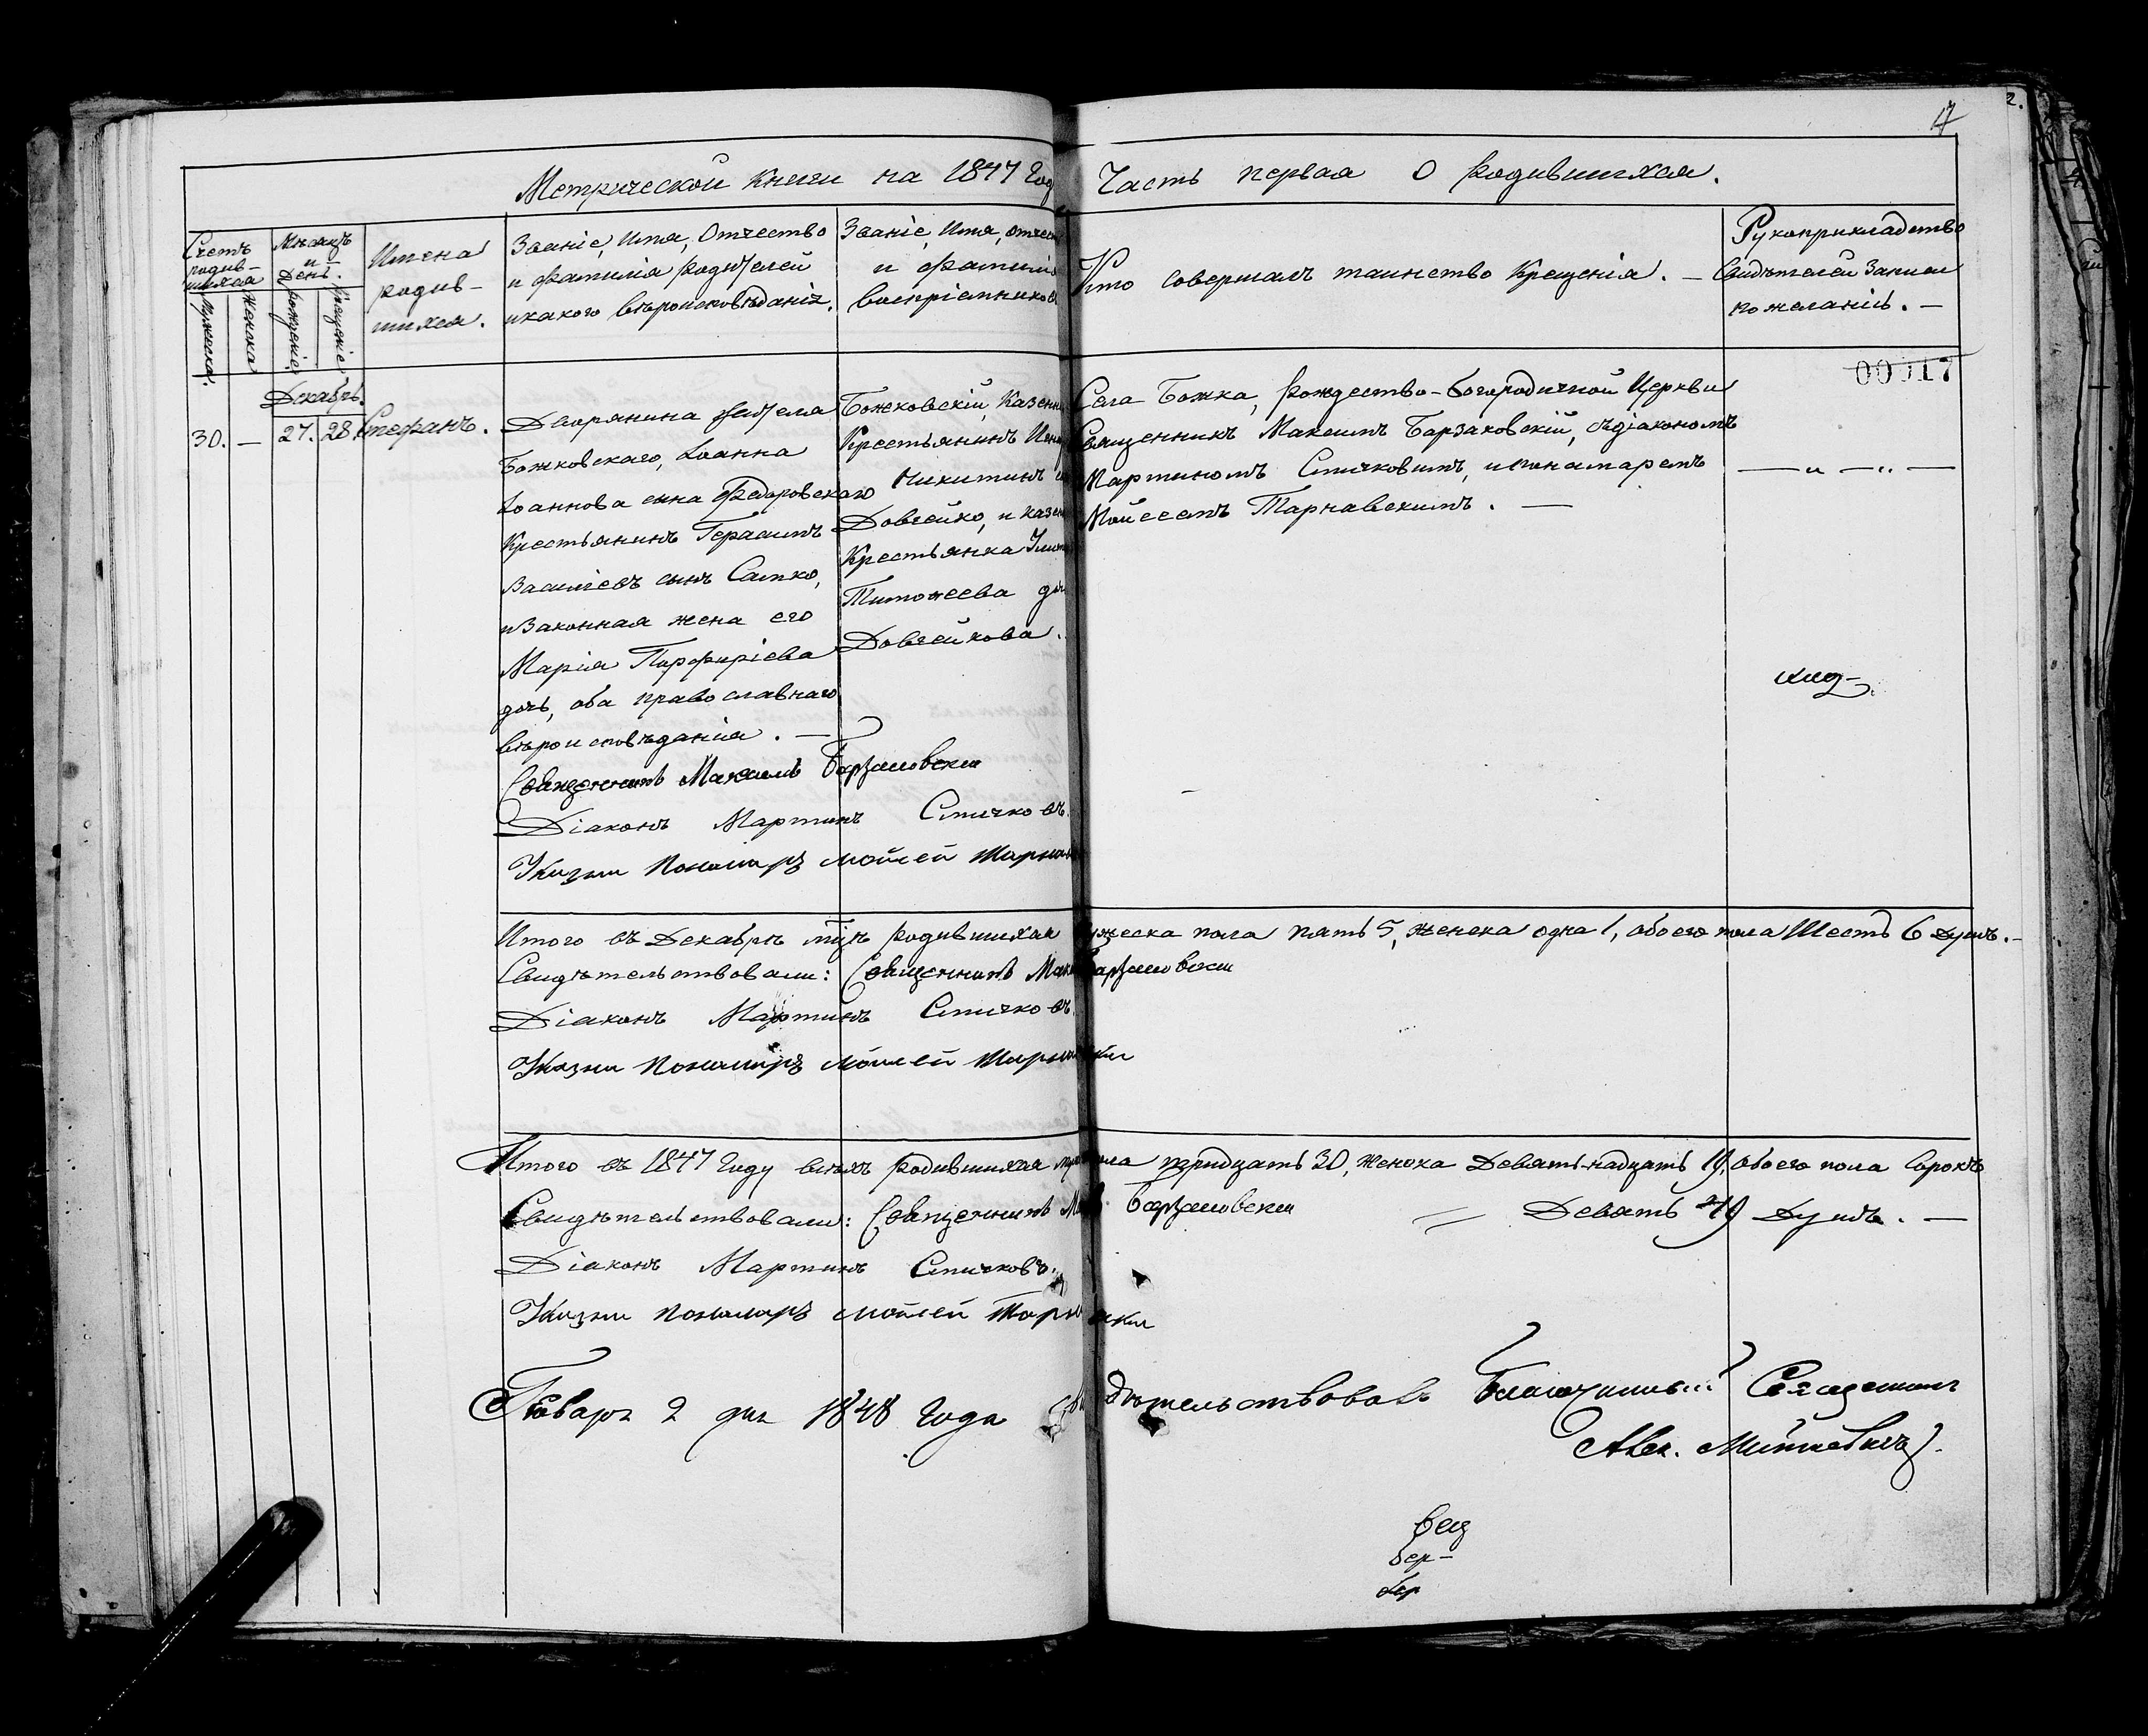 17
2.
Метрической Книги на 1847 Год Часть первая О родившихся.
Счетъ родив-шихся
Мужеска.
Женска
Мѣсяцъ и День.
Рожденіе.
Крещеніе
Имена
родив-
шихся.
Званіе, Имя, Отчество
и фамилія родителей
и какого вѣроисповѣданія.
Званіе, Имя, отчест
и фамилія
воспріемников
Кто совершалъ таинство Крещенія. —
Рукоприкладство
Свидѣтелей Записи
по желанію. —
00017
Декабрь.
30. — 27. 28. Стефанъ.
Дворянина жителя
Божковскаго, Іоанна
Іоаннова сына Федоровскаго
Крестьянинъ Герасимъ
Васильевъ сынъ Сапко,
и Законная жена его
Марія Порфиріева
дочь, оба православнаго
вѣроисповѣданія. —
Божковскій, Казенн
Крестьянинъ
Никитинъ
Довгейко, и казен
Крестьянка
Тимофеева доч
Довгейкова.
Села Божка, Рождество-Богородичной Церкви
Священникъ Максимъ Барзаковскій, съ діакономъ
Мартиномъ Стичковымъ, и понамаремъ
Мойсеемъ Тарнавскимъ. —
— „ — „ —
Священникъ Максимъ Барзаковскій
Діаконъ Мартинъ Стичковъ.
Пономарь Мойсей Тарнав
Итого въ Декабрѣ м̃цѣ родившихся мужеска пола пять 5, женска одна 1, обоего пола Шесть 6 душъ. —
Свидѣтельствовали: Священникъ Макс Барзаковскій
Діаконъ Мартинъ Стичковъ.
Пономарь Мойсей Тарнавскій
Итого въ 1847 Году всѣхъ родившихся муж пола тридцать 30, женска Девятьнадцать 19, обоего пола Сорокъ
Девять 49 Душъ. —
Свидѣтельствовали: Священникъ Барзаковскій
Діаконъ Мартинъ Стичковъ.
Пономарь Мойсей Тарнавскій
Генваря 2 дня 1848 Года свидѣтельствовалъ Благочинный Священникъ